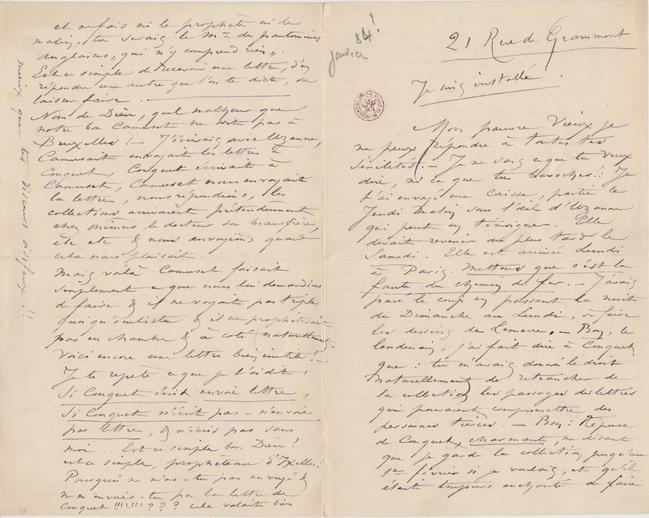 21 Rue de Grammont
84!
janvier
Je suis installé.
Mon pauvre Vieux je
ne peux répondre à toutes tes
sénilités. — Je ne sais ce que tu veux
dire, ni ce que tu bavoches. Je
t'ai envoyé une caisse, partie le
Jeudi Matin sous l'œil d'Uzanne
qui peut en témoigner. Elle
devait revenir au plus tard le
Samedi. Elle est arrivée Lundi
à Paris. Mettons que c'est la
faute du chemin de fer. — J'avais
paré le coup en passant la nuit
du Dimanche au Lundi, à faire
les dessins de Lemerre. — Bon, le
lendemain, j'ai fait dire à Conquet
que : tu m'avais donné le droit
naturellement de retrancher de
la collection les passages des lettres
qui pouvaient compromettre des
personnes tierces. — Bon : Réponse
de Conquet, charmante, me disant
que je garde la collection jusqu'au
1er février si je voulais, et qu'il
était toujours enchanté de faire
et ne fais ni le prophète ni le
malin. tu serais le Mr de pantomimes
anglaises, qui n'y comprend rien.
Est-ce simple de recevoir une lettre, d'en
répondre une autre que l'on te dicte, de
laisser faire.
Nom de Dieu, quel malheur que
notre bon Camuset ne soit pas à
Bruxelles! — J'écrivais avec Uzanne,
Camuset envoyait les lettres à
Conquet, Conquet écrivait à
Camuset, Camuset nous envoyait
la lettre, nous répondions, les
collections arrivaient prétendument
chez le docteur son beau frère,
etc etc & nous envoyions quand
cela nous plaisait
Mais voilà Camuset faisait
simplement ce que nous lui demandions
de faire & il ne voyait pas triple
quoiqu'oculiste & il ne prophétisait
pas en chambre & à côté naturellement.
Voici encore une lettre bien inutile!
Je te répète ce que je t'ai dit!
Si Conquet écrit envoie lettre,
Si Conquet n'écrit pas — n'envoie
pas lettre, & n'écris pas sans
moi. Est-ce simple bon Dieu!
est-ce simple, prophéteau d'Ixelles!
Pourquoi ne m'as-tu pas envoyé &
ne m'envoies-tu pas la lettre de
Conquet!!!!!!??? cela valait bien
mieux que les discours oiseux!!